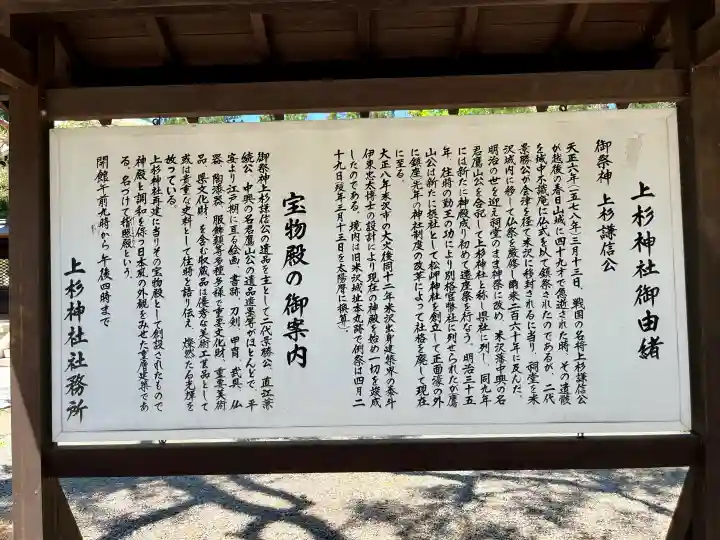 上杉神社御由緒
御祭神 上杉謙信公
天正六年(一五七八年)三月十三日、戦国の名将上杉謙信公
が越後の春日山城に四十九才で急逝された時、その遺骸
を城中不識庵に仏式を以て鎮祭されたのであるが、二代
景勝公が会津を経て米沢に移封されるに当り、祠堂を米
沢城内に移して仏祭を厳修し爾来二百六十年に及んだ。
明治の世を迎え祠堂のまま神祭に改め、米沢藩中興の名
君鷹山公を合祀して上杉神社と称し県社に列し、同九年
には新たに神殿成り初めて遷座祭を行なう。明治三十五
年、往時の勤王の功により別格官幣社に列せられたが鷹
山公は新たに摂社として松岬神社を創立して正面濠の外
に鎮座先年の神社制度の改革によって社格を廃して現在
に至る。
大正八年米沢市の大火後同十二年米沢出身建築界の泰斗
伊東忠太博士の設計により現在の神殿を始め一切を竣成
したのである。境内は旧米沢城址本丸跡で例祭は四月二
十九日(天正六年三月十三日を太陽暦に換算)。
宝物殿の御案内
御祭神上杉謙信公の遺品を主として二代景勝公、直江兼
続公、中興の名君鷹山公の遺品遺墨等がほとんどで、平
安より江戸期に亘る絵画、書跡、刀剣、甲冑、武具、仏
器、陶漆器、服飾類等多種多様で、重要文化財、重要美術
品、県文化財、を含む収蔵品は優秀な美術工芸品として
或は貴重な史料として往時を語り伝え、燦然たる光輝を
放っている。
上杉神社再建に当りその宝物殿として創設されたもので
神殿と調和を保つ日本風の外観をみせた重層建築であ
る。名づけて稽照殿という。
開館午前九時から午後四時まで
上杉神社社務所